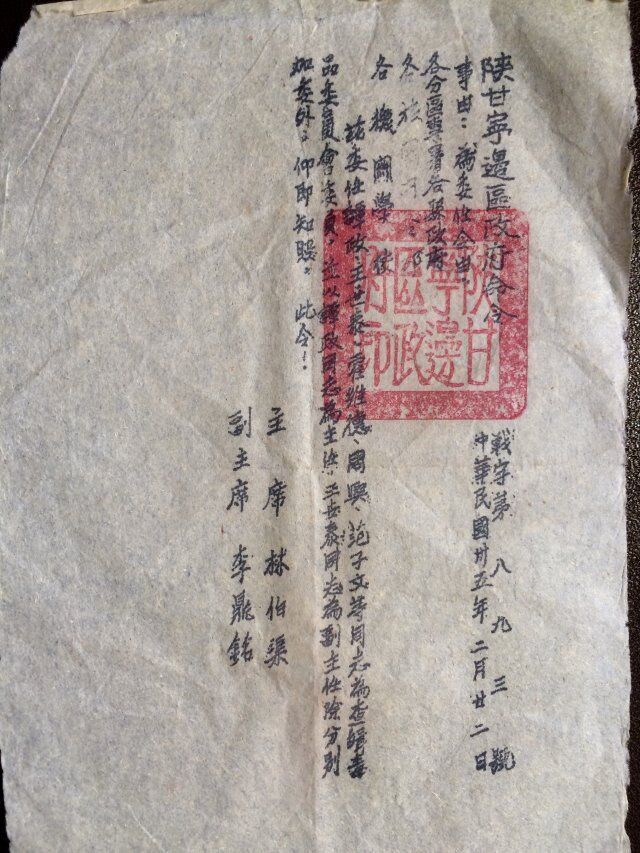 陝甘寧邊區政府命令
戰字第八九三號
中華民國卅五年二月廿二日
事由：為委任令由
各分區專署各縣政府
各
各機關學校
茲委任譚政、王世泰、霍維德、周興、范子文等同志為查緝毒
品委員會委員，並以譚政同志為主任，王世泰同志為副主任除分別
加委外，仰即知照。此令！
主席 林伯渠
副主席 李鼎銘
陝甘
寧邊
區政
府印